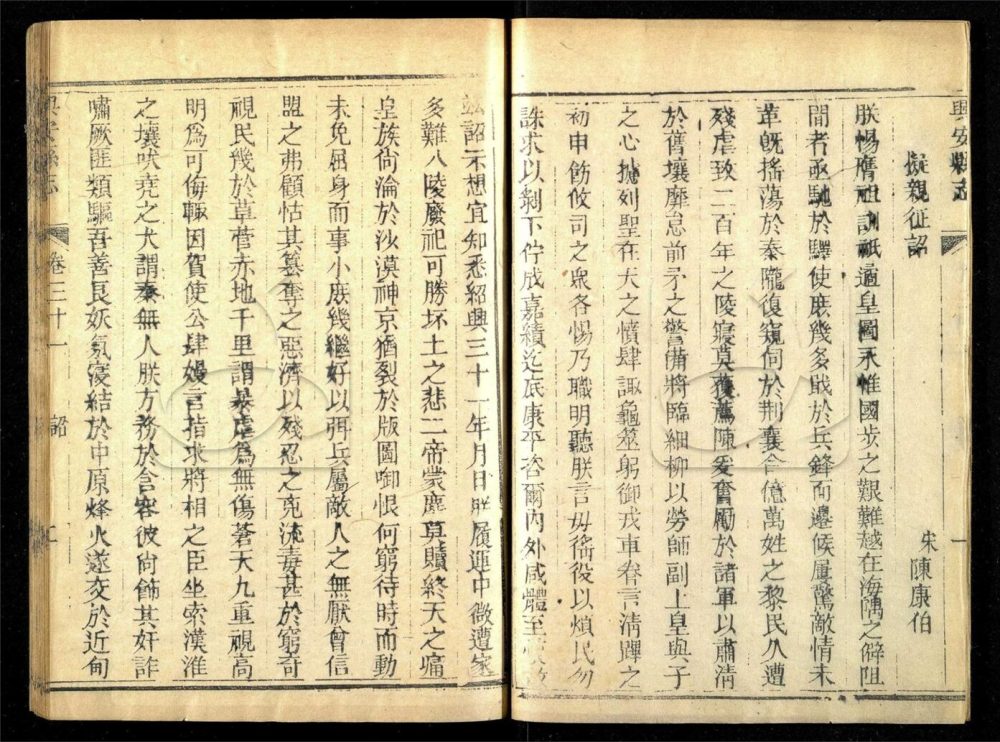 興安縣志
擬親征詔
宋陳康伯
朕惕膺祖訓祇遹皇圖永惟國步之艱難越在海隅之僻阻
間者亟馳於驛使庶幾多戢於兵鋒而邊候屢驚敵情未
革旣搖蕩於秦隴復窺伺於荆襄合億萬姓之黎民久遭
殘虐致二百年之陵寢莫獲薦陳爰奮勵於諸軍以肅清
於舊壤靡怠前矛之警備將臨細柳以勞師副上皇與子
之心攄列聖在天之憤肆諏龜筮躬御戎車眷言淸蹕之
初申飭攸司之衆各惕乃職明聽朕言毋徭役以煩民勿
誅求以剝下佇成嘉績迄底康平咨爾內外咸體至
茲詔示想宜知悉紹興三十一年月日朕履運中微遭家
多難八陵廢祀可勝坏土之悲二帝蒙塵莫贖終天之痛
皇族尙淪於沙漠神京猶裂於版圖啣恨何窮待時而動
未免屈身而事小庶幾繼好以弭兵屬敵人之無厭曾信
盟之弗顧怙其簒奪之惡濟以殘忍之兇流毒甚於窮奇
視民幾於草菅赤地千里謂暴虐爲無傷蒼天九重視高
明爲可侮輙因賀使公肆嫚言指求將相之臣坐索漢淮
之壤吠堯之犬謂秦無人朕方務於含容彼尙飾其奸詐
嘯厥匪類驅吾善良妖氛寖結於中原烽火遂交於近甸
卷三十一
詔